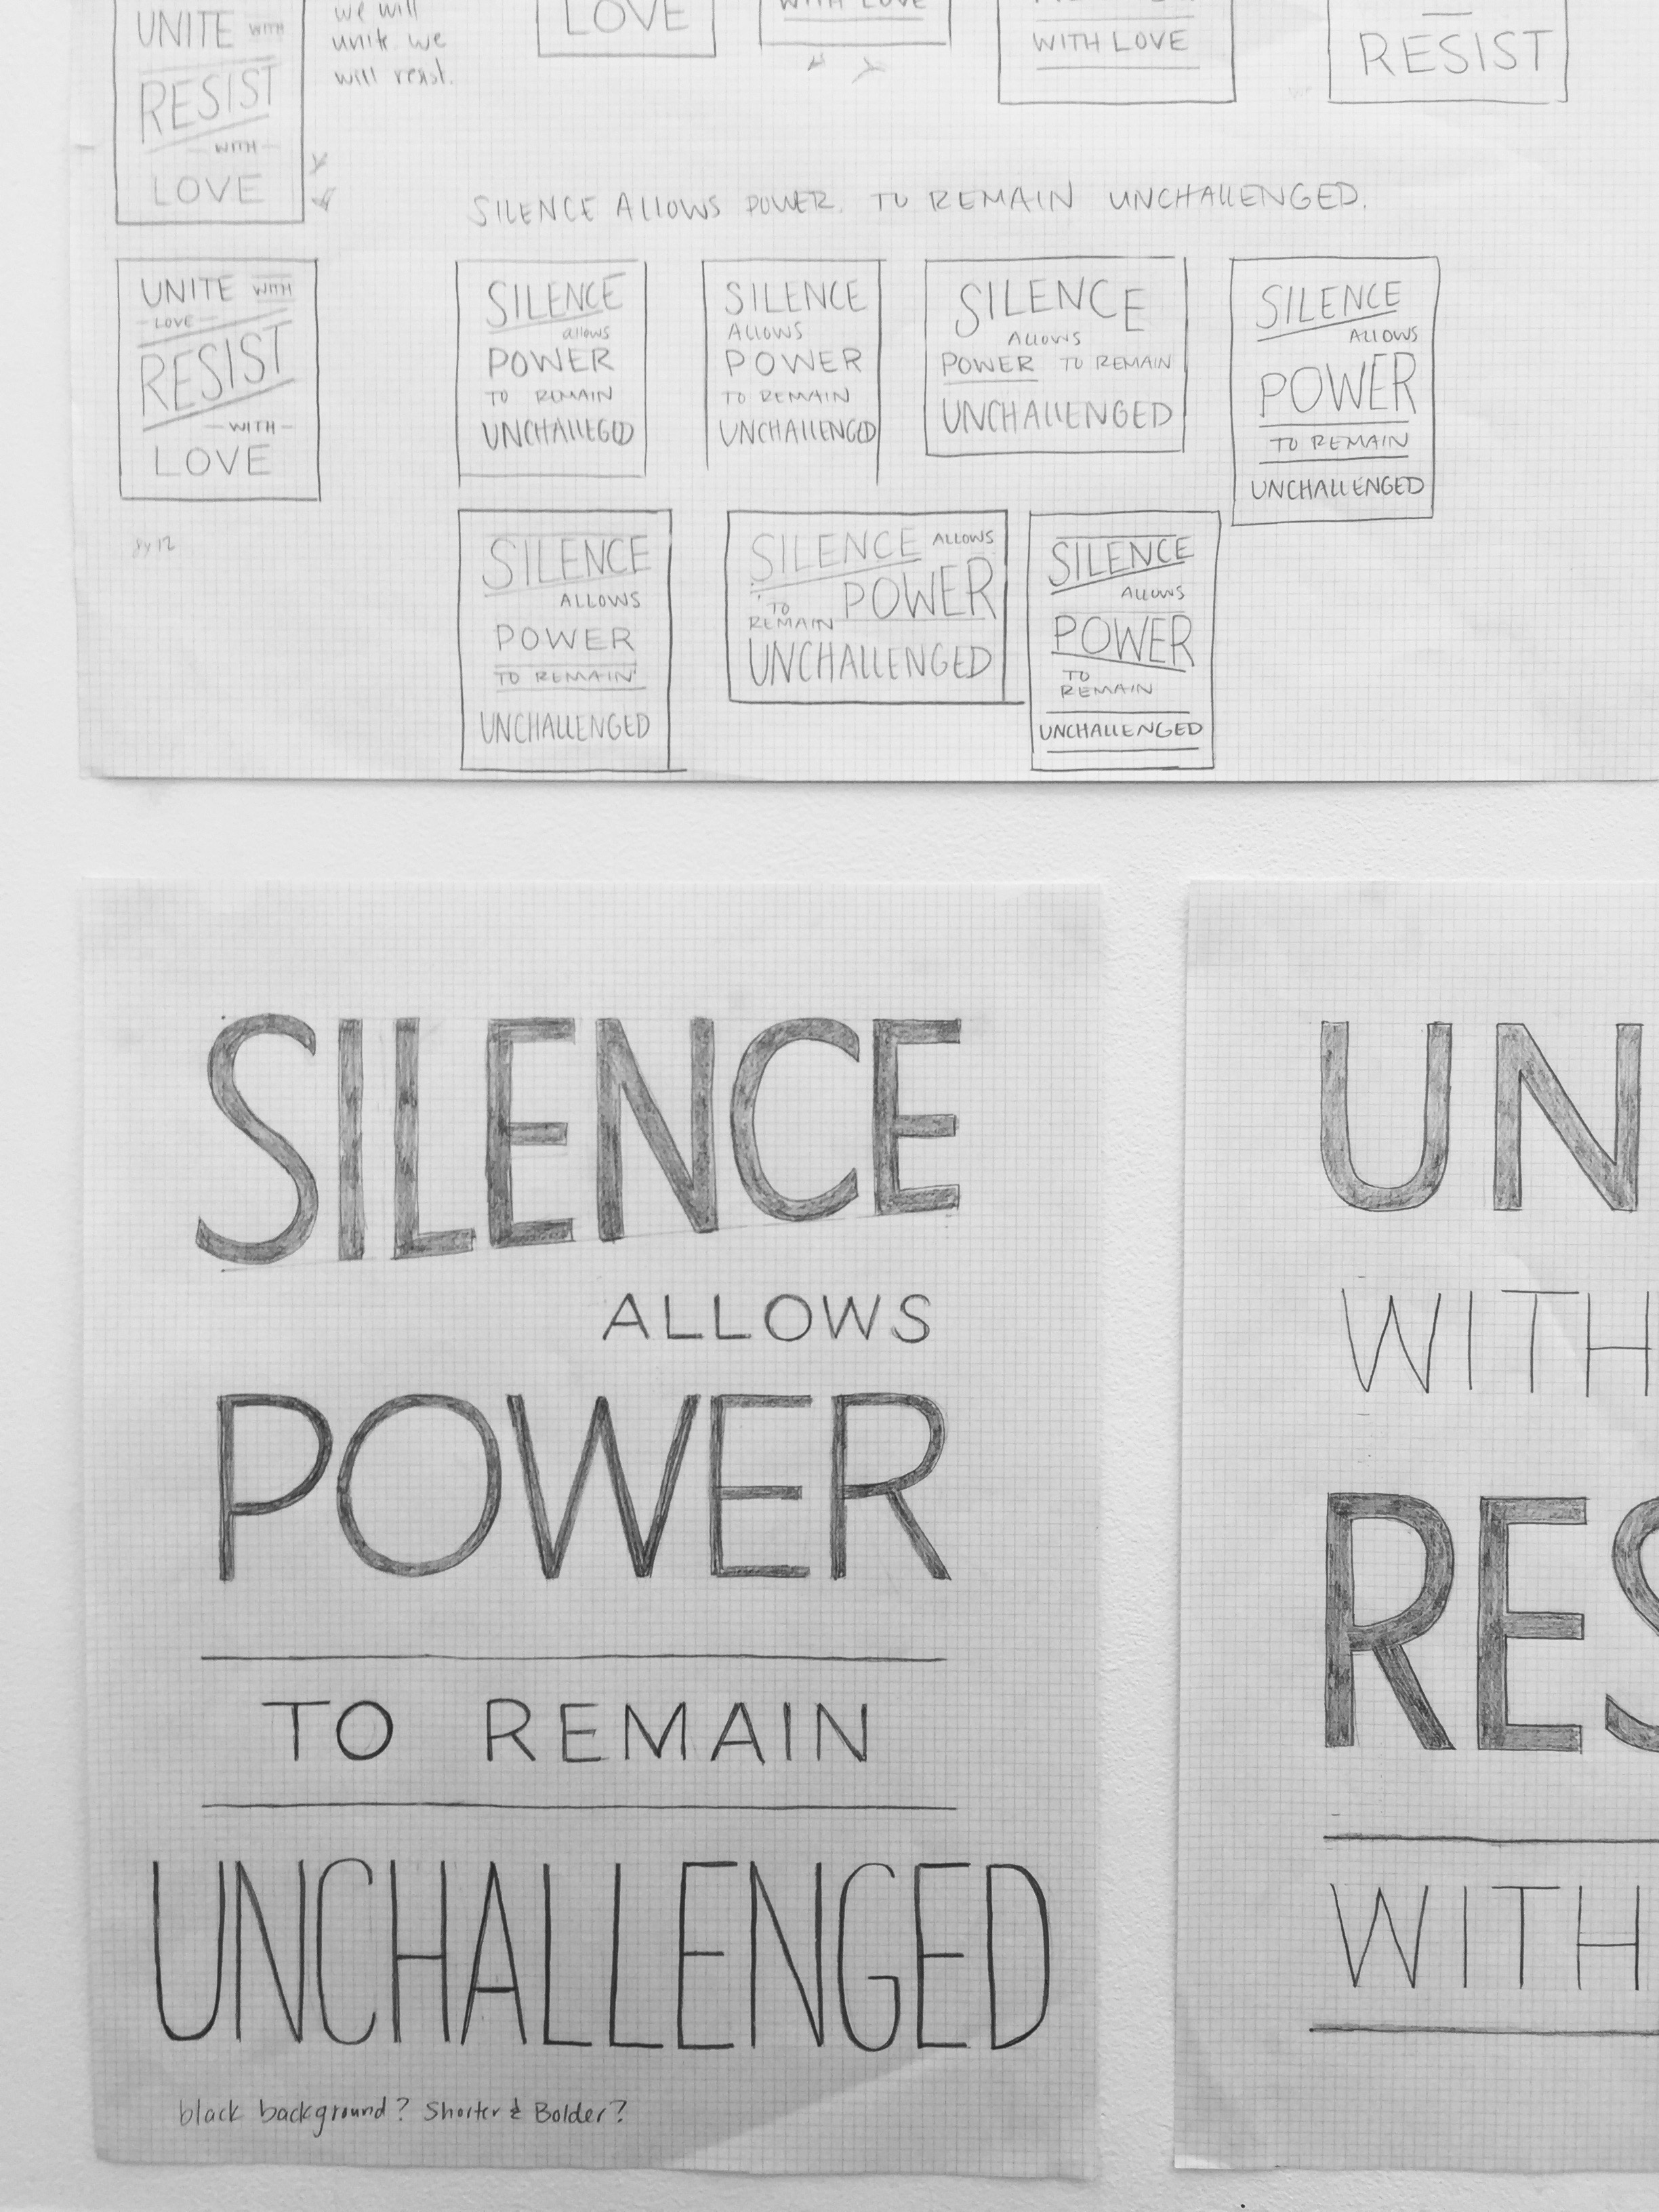 UNITE WITH
RESIST
WITH
LOVE
we will
unite we
will resist.
LOVE
WITH LOVE
WITH LOVE
RESIST
SILENCE ALLOWS POWER. TO REMAIN UNCHALLENGED.
UNITE WITH
LOVE
RESIST
WITH
LOVE
SILENCE
allows
POWER
TO REMAIN
UNCHALLEGED
SILENCE
ALLOWS
POWER
TO REMAIN
UNCHALLENGED
SILENCE
ALLOWS
POWER TO REMAIN
UNCHALLENGED
SILENCE
ALLOWS
POWER
TO REMAIN
UNCHALLENGED
SILENCE
ALLOWS
POWER
TO REMAIN
UNCHALLENGED
SILENCE ALLOWS
POWER
TO
REMAIN
UNCHALLENGED
SILENCE
ALLOWS
POWER
TO
REMAIN
UNCHALLENGED
SILENCE
ALLOWS
POWER
TO REMAIN
UNCHALLENGED
black background? Shorter & Bolder?
UN
WITH
RES
WITH